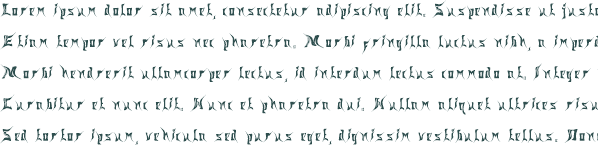 Lorem ipsum dolor sit amet, consectetur adipiscing elit. Suspendisse ut justo
Etiam tempor vel risus nec pharetra. Morbi fringilla luctus nibh, a imperd
Morbi hendrerit ullamcorper lectus, id interdum lectus commodo at. Integer
Curabitur et nunc elit. Nunc et pharetra dui. Nullam aliquet ultrices risu
Sed tortor ipsum, vehicula sed purus eget, dignissim vestibulum tellus. Done